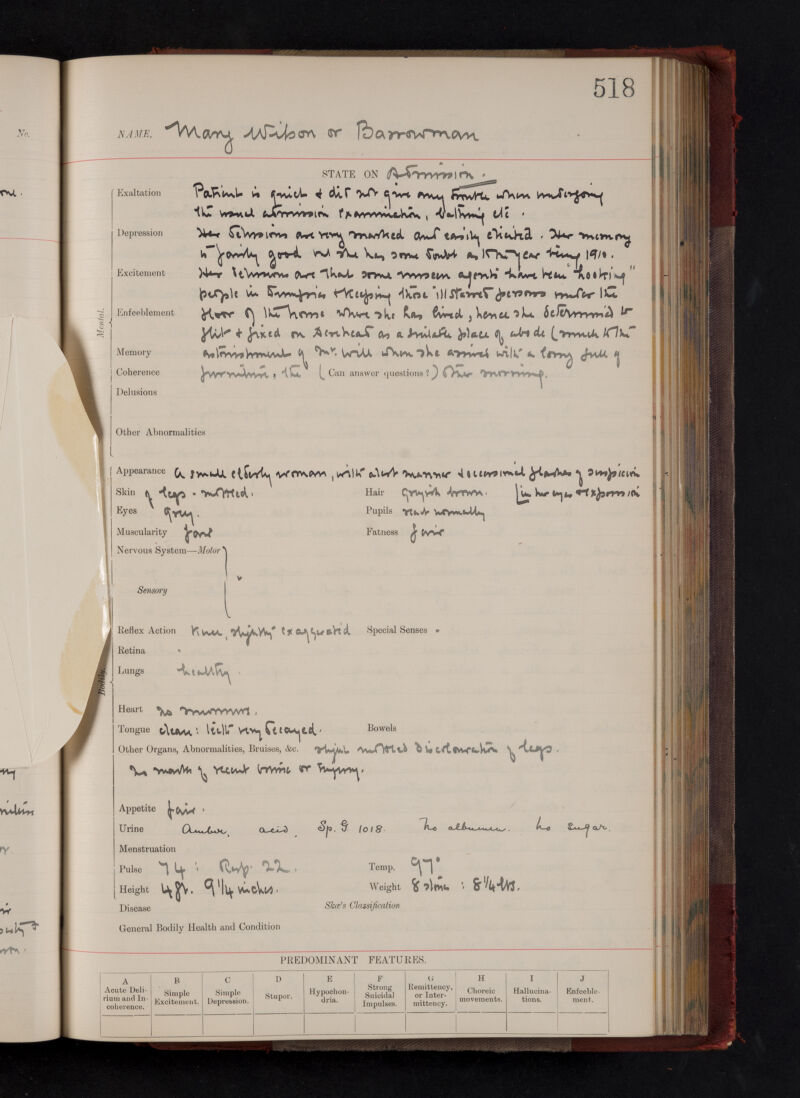 518
No.
NAME, Mary Wilson or Barrowman
STATE ON Admission.
Exaltation Patient is quiet & did not give any trouble when undergoing
the usual admission examination, bathing etc.
Depression Her delusions are very marked and easily elicited. Her memory
is fairly good but she has some doubt as to the year being 1910.
Excitement Her delusions are that some unseen agents have been "hooking"
people in Dumfries & keeping those ill starred persons under the
Enfeeblement floor of the house where she has lived, hence she determined to
flit & fixed on as a suitable place of abode (much to the
Memory astonishment of Mr. Will when she arrived with a lorry full of
Coherence furniture, the (Can answer questions?) other morning.
Delusions
Mental.
Other Abnormalities
Appearance A small elderly woman, with alert manner & occasional flashes of suspicion
Skin of legs - mottled. Hair Greyish brown. [in her eyes & expression
Eyes Grey. Pupils react normally
Muscularity fair Fatness fair
Nervous System—Motor
Sensory
Reflex Action Knee, slightly exaggerated Special Senses
Retina
Lungs healthy.
Bodily.
Heart no murmurs.
Tongue clean: teeth very decayed. Bowels
Other Organs, Abnormalities, Bruises, &c. slight mottled discolouration of legs.
No marks of recent bruise or injury.
Appetite fair.
Urine Amber, acid, Sp. G 1018. No albumen. No Sugar.
Menstruation
Pulse 74: Resp. 22. Temp. 97°
Height 4 ft. 9 1/4 inches. Weight 8 stone : 8 1/4 lbs.
Disease Skae's Classification
General Bodily Health and Condition
PREDOMINANT FEATURES.
A B C D E F G H I J
Acute Delirium and Incoherence. Simple Excitement. Simple Depression. Stupor. Hypochondria. Strong Suicidal Impulses. Remittency, or Intermittency. Choreic movements. Hallucinations. Enfeeblement.